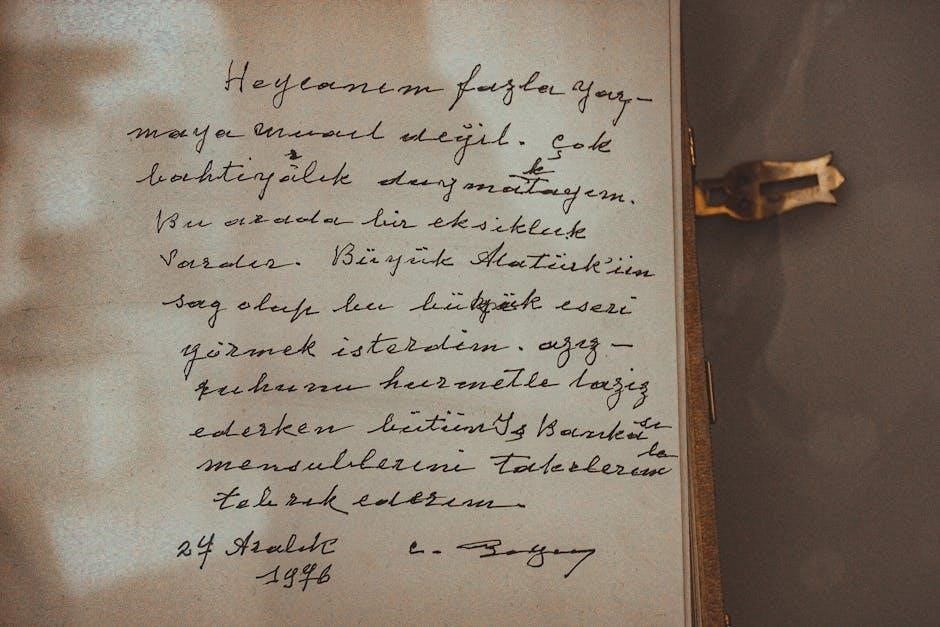 Heycanım fazla yaz-
maya musaıt değil. Çok
bahtiyârlık duymaktayım.
Bu arada bir eksikluk
vardır. Büyük Atatürk'ün
sag olup bu büyük eseri
görmek isterdim. aziz-
ruhunu hurmetle taziz
ederken bütün İş Bankası
mensublerini takdlerimle
tebrık ederım.
27 Aralık C. Bayar
1976